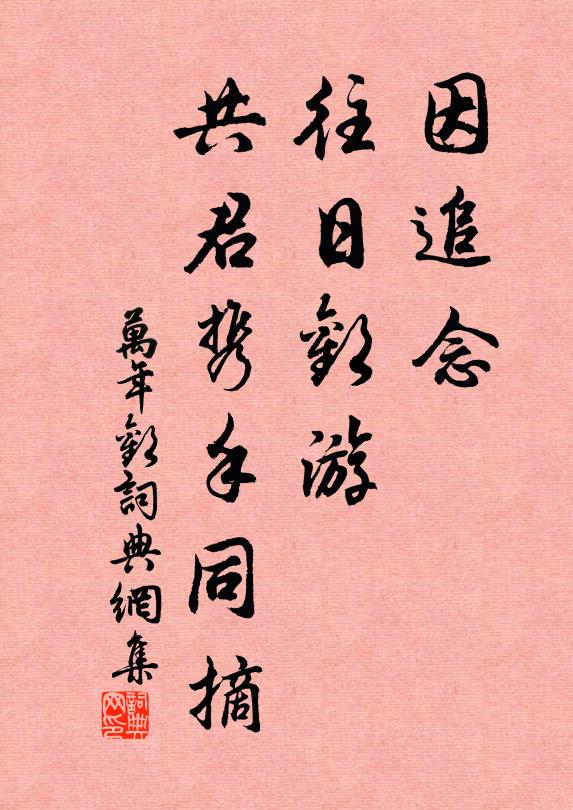 因追念
往日歡游
共君携手同摘
萬年歡詞典網集
詞典
网印